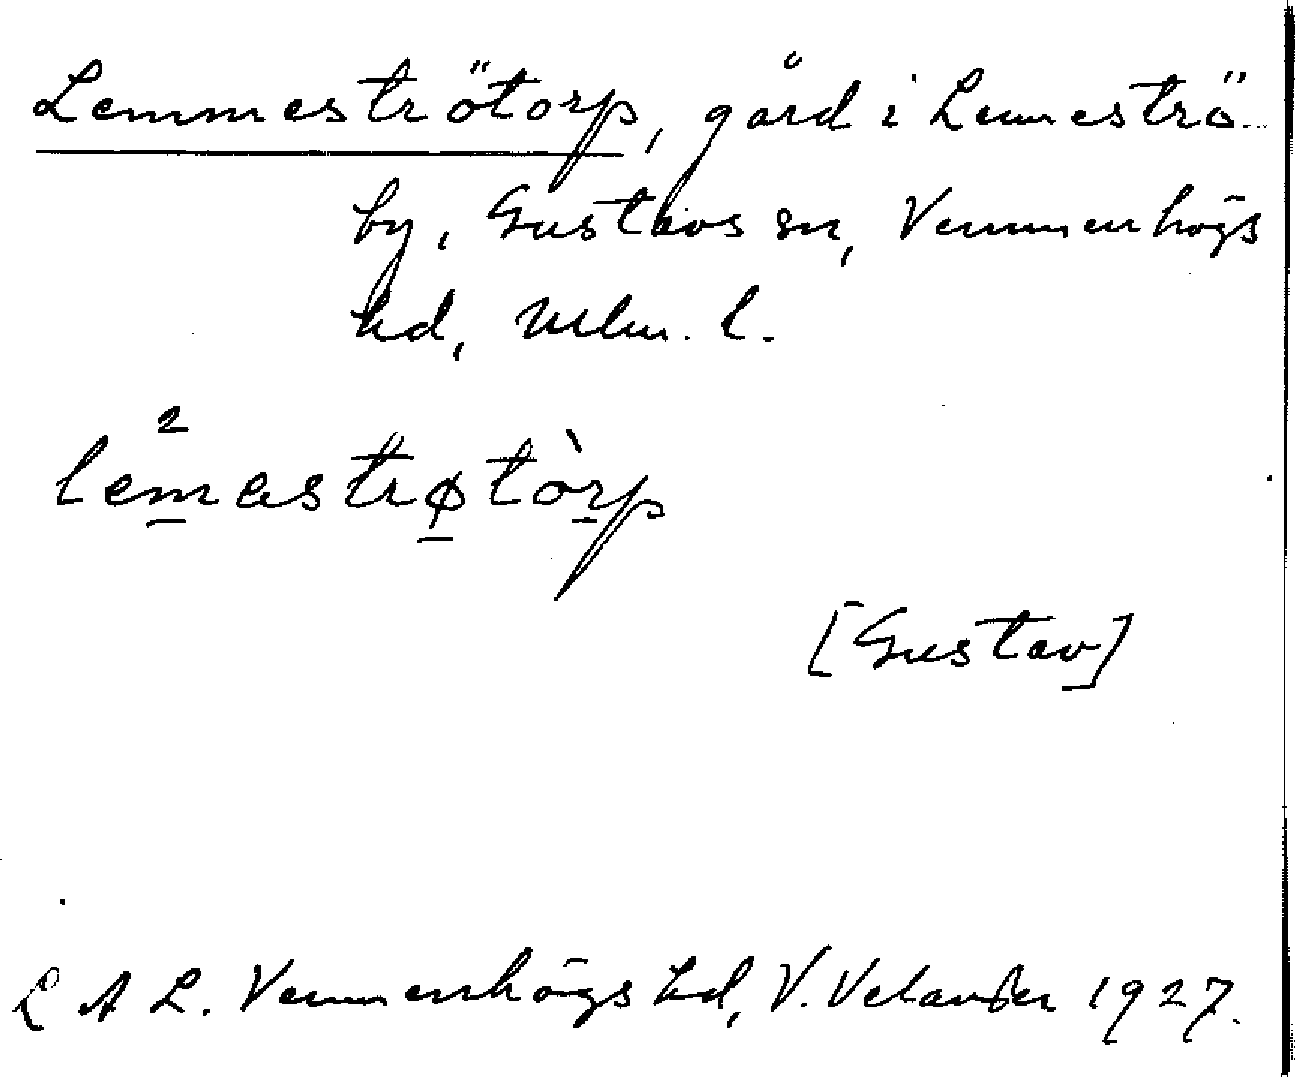 Lemmeströtorp, gård i Lemeströ
by, Gustavs sn, Vemmenhögs
hd, Mlm. l.
lem̲²astrø̲tòr̲p
[Gustav]
L A L. Vemmenhögs hd, V. Velander 1927.